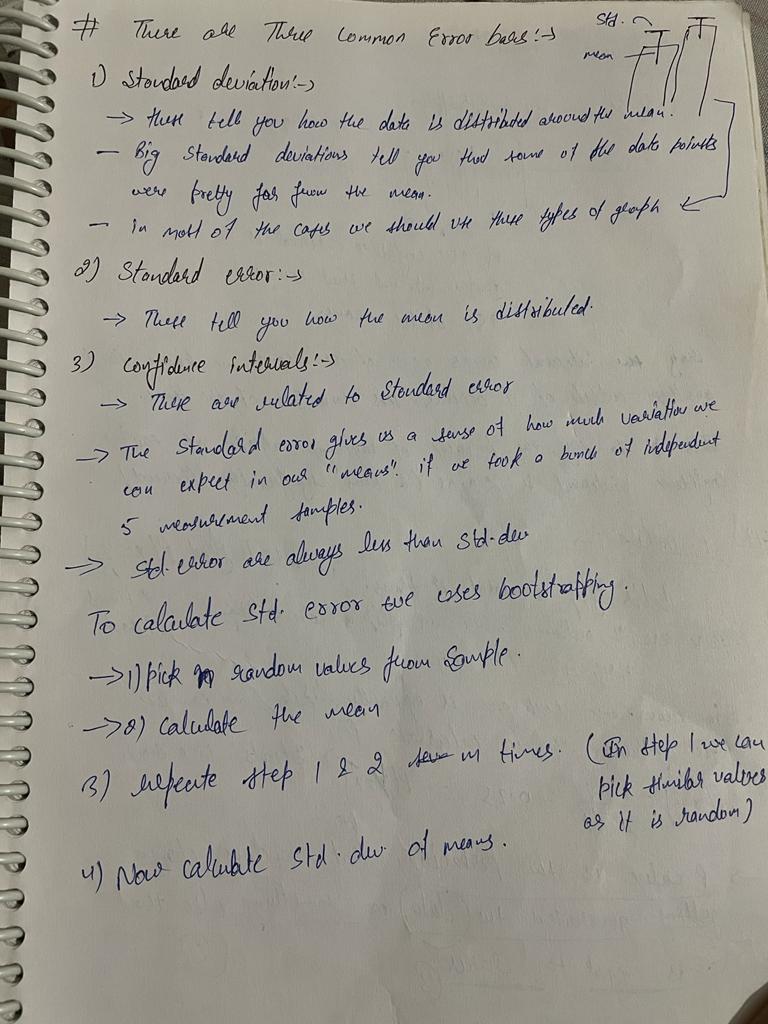 # There are Three Common Error bars:→
Std.
mean
1) Standard deviation:→
→ these tell you how the data is distributed around the mean.
– Big standard deviations tell you that some of the data points
were pretty far from the mean.
– in most of the cases we should use these types of graph
2) Standard error:→
→ These tell you how the mean is distributed.
3) Confidence intervals:→
→ These are related to Standard error
→ The Standard error gives us a sense of how much variation we
can expect in our "means" if we took a bunch of independent
5 measurement samples.
→ Std. error are always less than Std. dev
To calculate Std. error we uses bootstrapping.
→ 1) pick n random values from Sample.
→ 2) calculate the mean
3) repeate step 1 & 2 m times. (In step 1 we can
pick similar values
as it is random)
4) Now calculate Std. dev. of means.